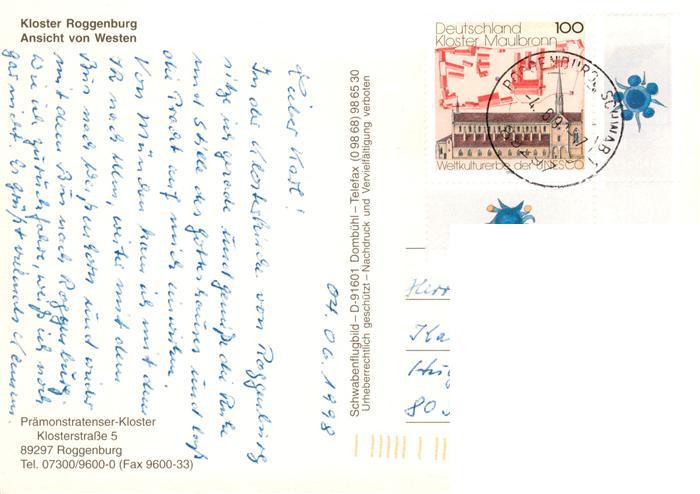 Kloster Roggenburg
Ansicht von Westen
04.06.1998
Lieber Karl!
In der Klosterkirche von Roggenburg
sitze ich gerade und genieße die Ruhe
und Stille des Gotteshauses und lass
die Pracht auf mich einwirken.
Von München kam ich mit dem
nach Ulm, weiter mit dem
Bus nach und wieder
mit dem Bus nach Roggenburg.
Wie ich zurückfahre, weiß ich noch
gar nicht. Es grüßt
Prämonstratenser-Kloster
Klosterstraße 5
89297 Roggenburg
Tel. 07300/9600-0 (Fax 9600-33)
Schwabenflugbild – D-91601 Dombühl – Telefax (0 98 68) 98 65 30
Urheberrechtlich geschützt – Nachdruck und Vervielfältigung verboten
Deutschland 100
Kloster Maulbronn
Weltkulturerbe der UNESCO
ROGGENBURG, SCHWAB 1
Herr
Ka
80